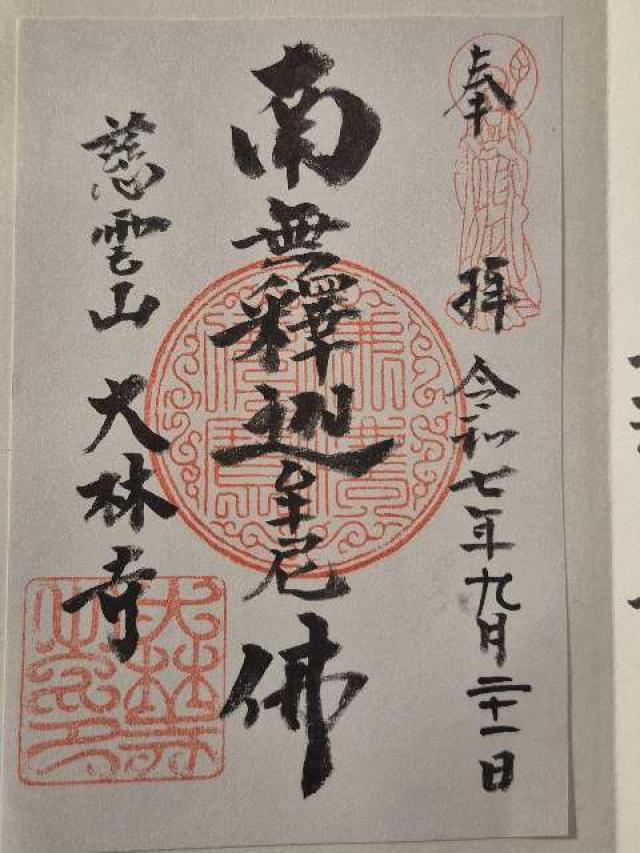 奉拝
令和七年九月二十一日
南無釋迦牟尼佛
慈雲山
大林寺